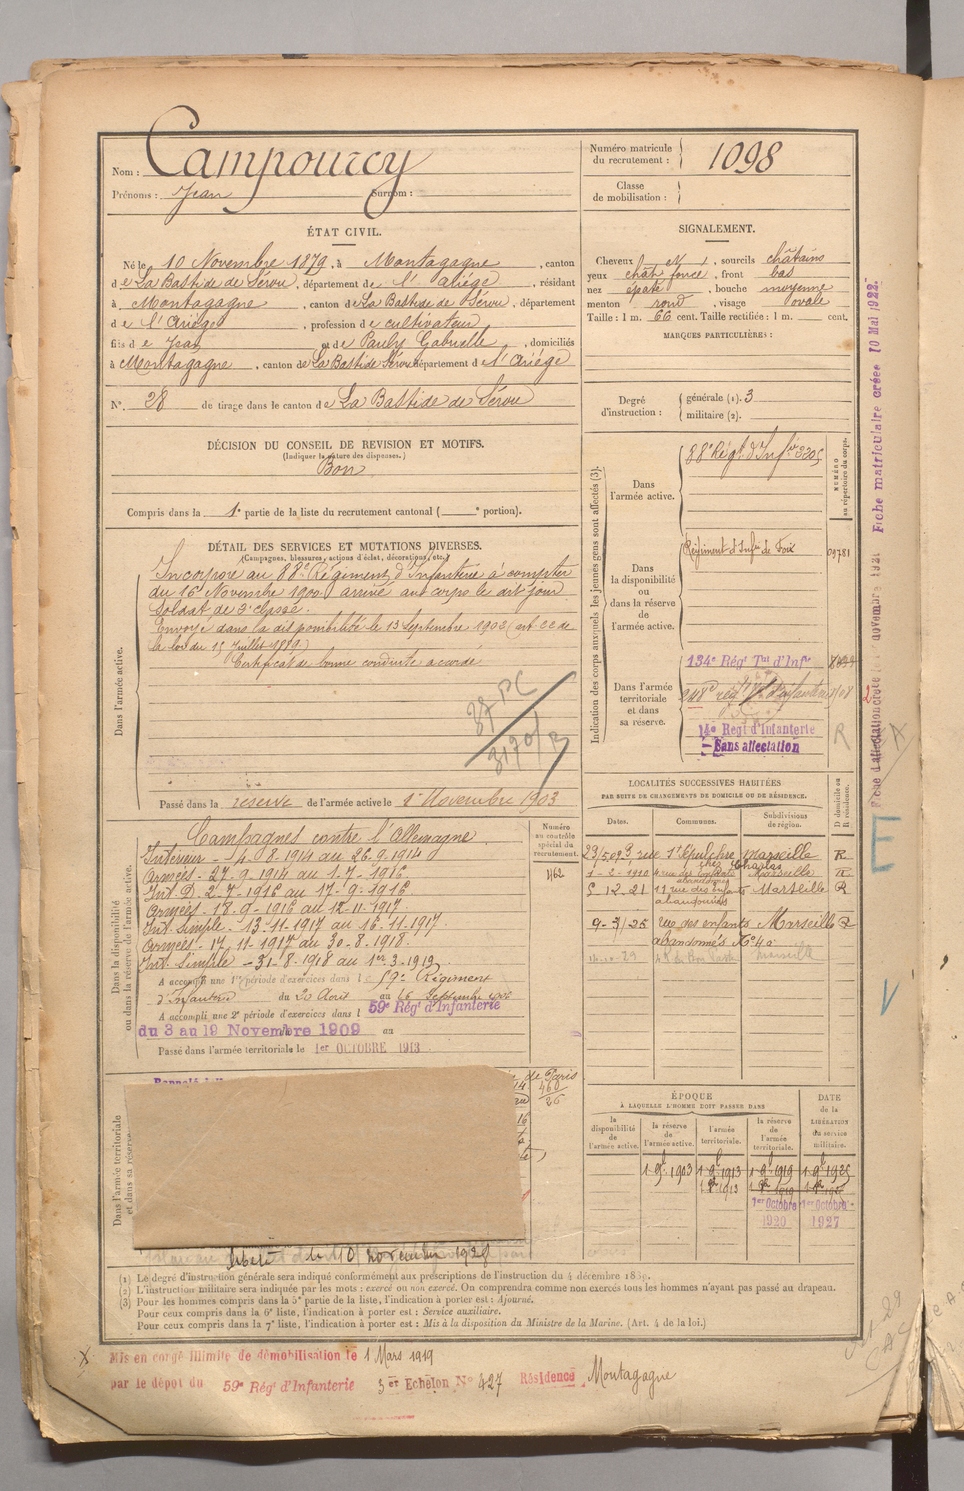 Nom : Campourcy
Prénoms : Jean Surnom :
Numéro matricule du recrutement : 1098
Classe de mobilisation :
ÉTAT CIVIL.
Né le 10 Novembre 1879, à Montagagne, canton
de La Bastide de Sérou, département de l'Ariège, résidant
à Montagagne, canton de La Bastide de Sérou, département
de l'Ariège, profession de cultivateur
fils de Jean et de Pauly Gabrielle, domiciliés
à Montagagne, canton de La Bastide Sérou département de l'Ariège
N° 28 de tirage dans le canton de La Bastide de Sérou
SIGNALEMENT.
Cheveux , sourcils châtains
yeux chât foncé, front bas
nez épaté, bouche moyenne
menton rond, visage ovale
Taille : 1 m. 66 cent. Taille rectifiée : 1 m. cent.
MARQUES PARTICULIÈRES :
Degré d'instruction : générale (1). 3
militaire (2).
DÉCISION DU CONSEIL DE REVISION ET MOTIFS.
(Indiquer la nature des dispenses.)
Bon
Compris dans la 1e partie de la liste du recrutement cantonal ( e portion).
DÉTAIL DES SERVICES ET MUTATIONS DIVERSES.
(Campagnes, blessures, actions d'éclat, décorations, etc.)
Dans l'armée active.
Incorporé au 88e Régiment d'Infanterie à compter
du 16 Novembre 1900 arrivé au corps le dit jour
Soldat de 2e classe.
Envoyé dans la disponibilité le 13 Septembre 1903 (art. de
la loi du 15 Juillet 1889)
Certificat de bonne conduite accordé
37 PC
Passé dans la réserve de l'armée active le 1er Novembre 1903
Indication des corps auxquels les jeunes gens sont affectés (3).
NUMÉRO au répertoire du corps.
Dans l'armée active.
88e Régt d'Infie
Dans la disponibilité ou dans la réserve de l'armée active.
Régiment d'Infie de Foix 09781
Dans l'armée territoriale et dans sa réserve.
134e Régt Tal d'Infie
14e Régt d'Infanterie
Sans affectation
R
Fiche matriculaire créée 10 Mai 1922.
Dans la disponibilité ou dans la réserve de l'armée active.
Numéro au contrôle spécial du recrutement.
1162
Campagnes contre l'Allemagne
Intérieur - 4.8.1914 au 26.9.1914
Armées - 27.9.1914 au 1.7.1916.
Int. D. 2.7.1916 au 17.9.1916
Armées - 18.9.1916 au 12.11.1917
Int. Simple - 13.11.1917 au 16.11.1917
Armées - 17.11.1917 au 30.8.1918.
Int. Simple - 31.8.1918 au 1er.3.1919
A accompli une 1re période d'exercices dans le 59e Régiment
d'Infanterie du 20 Août au 16 Septembre
A accompli une 2e période d'exercices dans le 59e Régt d'Infanterie
du 3 au 19 Novembre 1909 au
Passé dans l'armée territoriale le 1er OCTOBRE 1913
LOCALITÉS SUCCESSIVES HABITÉES
PAR SUITE DE CHANGEMENTS DE DOMICILE OU DE RÉSIDENCE.
Dates. Communes. Subdivisions de région. D domicile ou R résidence.
Marseille R
1-2-1910 Marseille R
12-21 11 rue des enfants abandonnés Marseille R
9-3/25 rue des enfants abandonnés No 40 Marseille R
Dans l'armée territoriale et dans sa réserve.
de Paris
460
26
le 10 novembre 1928
ÉPOQUE
À LAQUELLE L'HOMME DOIT PASSER DANS
DATE de la LIBÉRATION du service militaire.
la disponibilité de l'armée active. la réserve de l'armée active. l'armée territoriale. la réserve de l'armée territoriale.
1 9bre 1903 1 9bre 1913 1 9bre 1919 1 9bre 1925
1er Octobre 1920 1er Octobre 1927
(1) Le degré d'instruction générale sera indiqué conformément aux prescriptions de l'instruction du 4 décembre 1889.
(2) L'instruction militaire sera indiquée par les mots : exercé ou non exercé. On comprendra comme non exercés tous les hommes n'ayant pas passé au drapeau.
(3) Pour les hommes compris dans la 5e partie de la liste, l'indication à porter est : Ajourné.
Pour ceux compris dans la 6e liste, l'indication à porter est : Service auxiliaire.
Pour ceux compris dans la 7e liste, l'indication à porter est : Mis à la disposition du Ministre de la Marine. (Art. 4 de la loi.)
Mis en congé illimité de démobilisation le 1 Mars 1919
par le dépôt du 59e Régt d'Infanterie 3er Echelon No 427 Résidence Montagagne